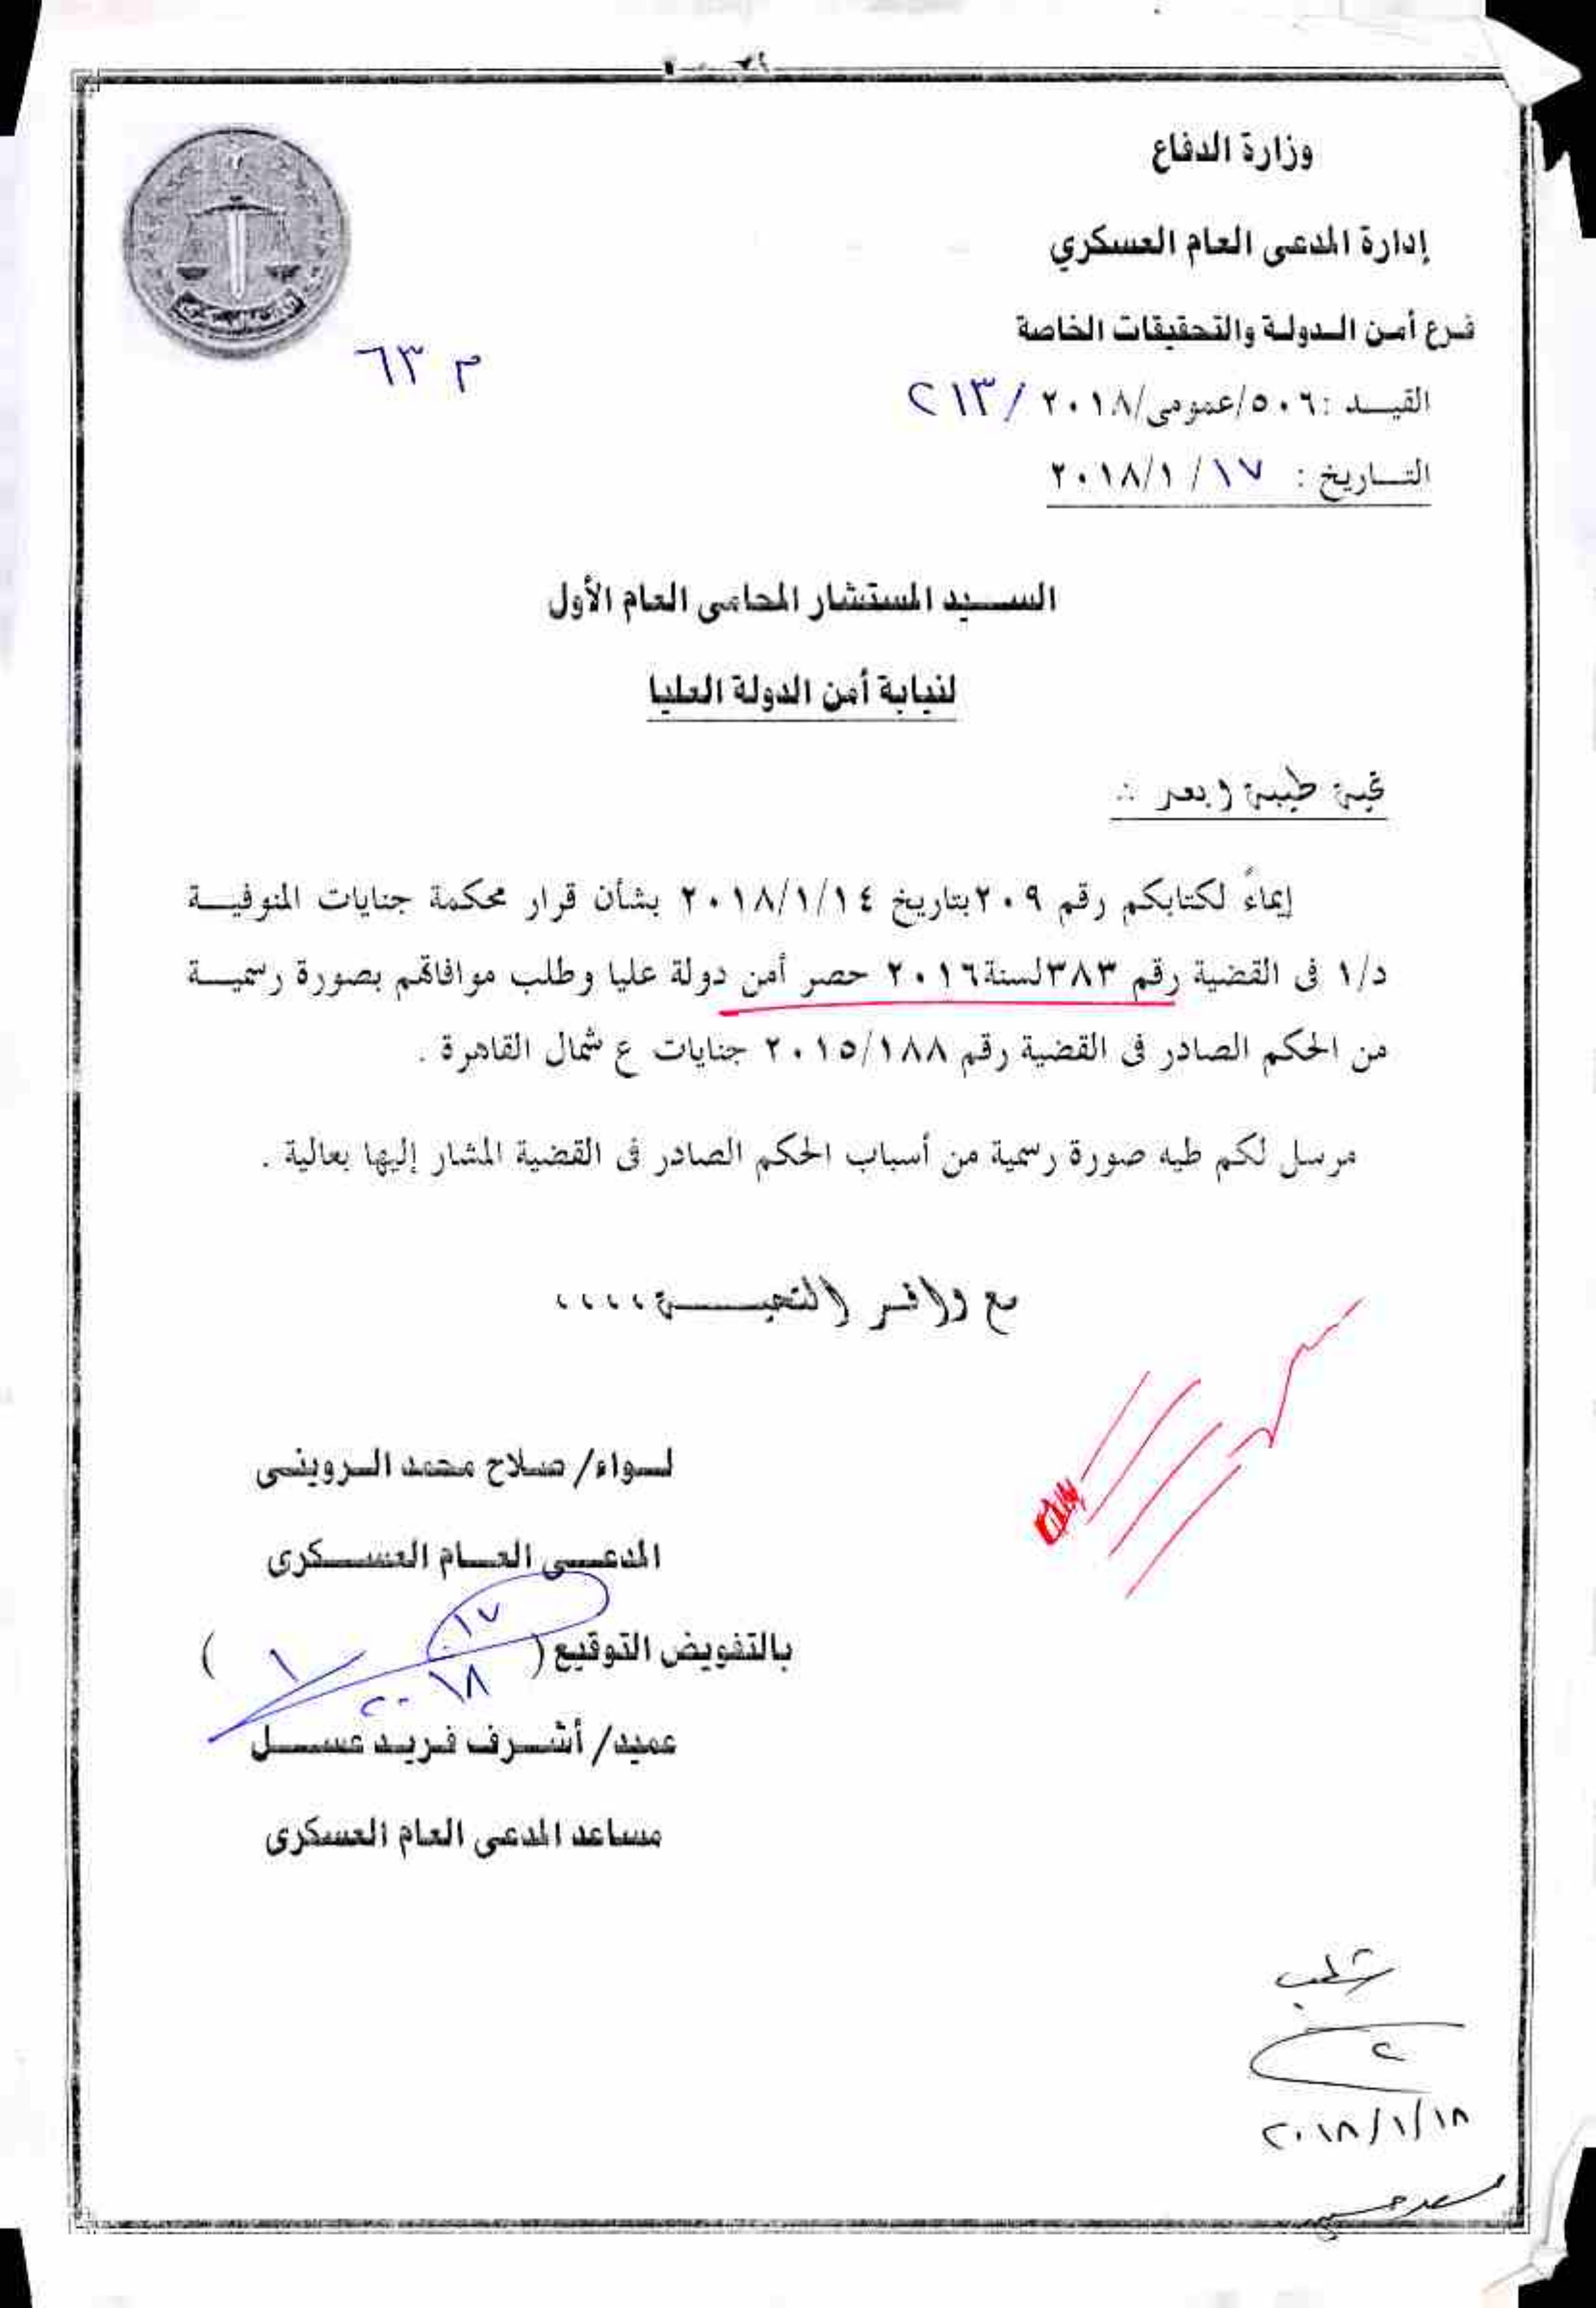 وزارة الدفاع
إدارة المدعى العام العسكري
فرع أمن الدولة والتحقيقات الخاصة
م ٦٣
القيد : ٥٠٦/عمومى/٢٠١٨ /٢١٣
التاريخ : ١٧ / ٢٠١٨/١
السيد المستشار المحامى العام الأول
لنيابة أمن الدولة العليا
تحية طيبة وبعد :.
إيماءً لكتابكم رقم ٢٠٩ بتاريخ ٢٠١٨/١/١٤ بشأن قرار محكمة جنايات المنوفية
د/١ فى القضية رقم ٣٨٣ لسنة ٢٠١٦ حصر أمن دولة عليا وطلب موافاتهم بصورة رسمية
من الحكم الصادر فى القضية رقم ٢٠١٥/١٨٨ جنايات ع شمال القاهرة .
مرسل لكم طيه صورة رسمية من أسباب الحكم الصادر فى القضية المشار إليها بعالية .
مع وافر التحية ،،،،
لواء/ صلاح محمد الروينى
المدعى العام العسكرى
بالتفويض التوقيع ( )
١٧
١
٢٠١٨
عميد/ أشرف فريد عسل
مساعد المدعى العام العسكرى
٢٠١٨/١/١٨